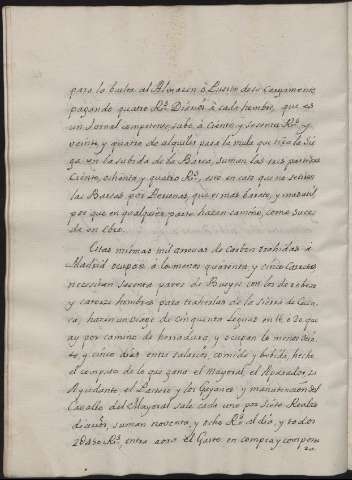 para la buelta al Almacen ó Puerto de su Cargamento
pagando quatro R.s Diarios á cada hombre, que es
un Jornal competente, sube á Ciento y sesenta R.s y
veinte y quatro de alquiler para la mula que tira la Sir
ga en la subida de la Barca, suman las tres partidas
Ciento, ochenta y quatro R.s, esto en caso que no se tiren
las Barcas por Personas, que es mas barato, y mas util
por que en qualquiera parte hazen camino, como suce
de en Ebro.
Estas mismas mil arrovas de Carbon trahidas á
Madrid ocupan á lo menos quarenta y cinco Carretas
necesitan sesenta pares de Bueyes con los de rebezo
y catorze hombres para traherlas de la Sierra de Cuen
ca; hazen un viage de cinquenta leguas en
ay por camino de herradura, y ocupan lo menos
te y cinco dias entre salarios, comida y bebida, hecho
el computo de lo que gana el Mayoral, el Aperador, su
Ayudante el Pastero y los Gañanes y manutencion del
Cavallo del Mayoral sale cada uno por siete Reales
diarios, suman noventa, y ocho R.s al dia, y todos
2@450 R.s, entra aora el Gasto en compra y compos